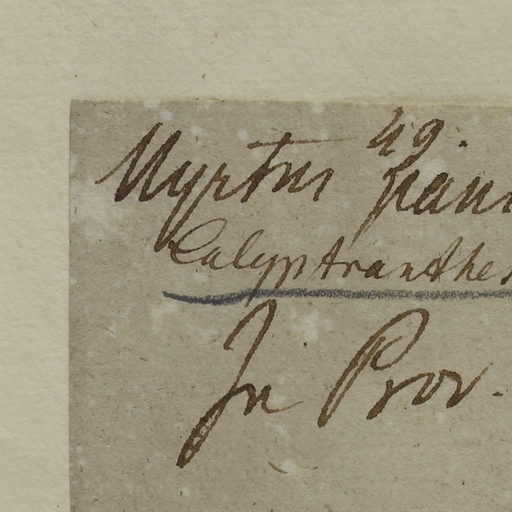 49.
Myrtus pani
Calyptranthes
In Prov.